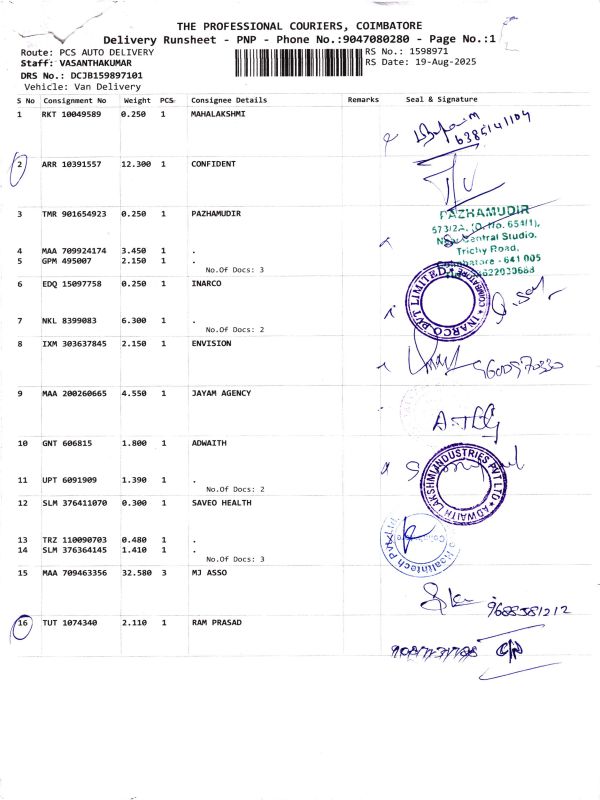 THE PROFESSIONAL COURIERS, COIMBATORE
Delivery Runsheet - PNP - Phone No.:9047080280 - Page No.:1
Route: PCS AUTO DELIVERY
RS No.: 1598971
Staff: VASANTHAKUMAR
RS Date: 19-Aug-2025
DRS No.: DCJB159897101
Vehicle: Van Delivery
S No Consignment No Weight PCS Consignee Details Remarks Seal & Signature
1 RKT 10049589 0.250 1 MAHALAKSHMI
6385141104
2 ARR 10391557 12.300 1 CONFIDENT
3 TMR 901654923 0.250 1 PAZHAMUDIR
PAZHAMUDIR
573/2A, (O. No. 654/1),
New Central Studio,
Trichy Road,
Coimbatore - 641 005
4 MAA 709924174 3.450 1 .
5 GPM 495007 2.150 1 .
No.Of Docs: 3
6 EDQ 15097758 0.250 1 INARCO
INARCO PVT LIMITED COIMBATORE
7 NKL 8399083 6.300 1 .
No.Of Docs: 2
8 IXM 303637845 2.150 1 ENVISION
9600970330
9 MAA 200260665 4.550 1 JAYAM AGENCY
10 GNT 606815 1.800 1 ADWAITH
ADWAITH LAKSHMI INDUSTRIES PVT LTD
11 UPT 6091909 1.390 1 .
No.Of Docs: 2
12 SLM 376411070 0.300 1 SAVEO HEALTH
13 TRZ 110090703 0.480 1 .
14 SLM 376364145 1.410 1 .
No.Of Docs: 3
15 MAA 709463356 32.580 3 MJ ASSO
9688581212
16 TUT 1074340 2.110 1 RAM PRASAD